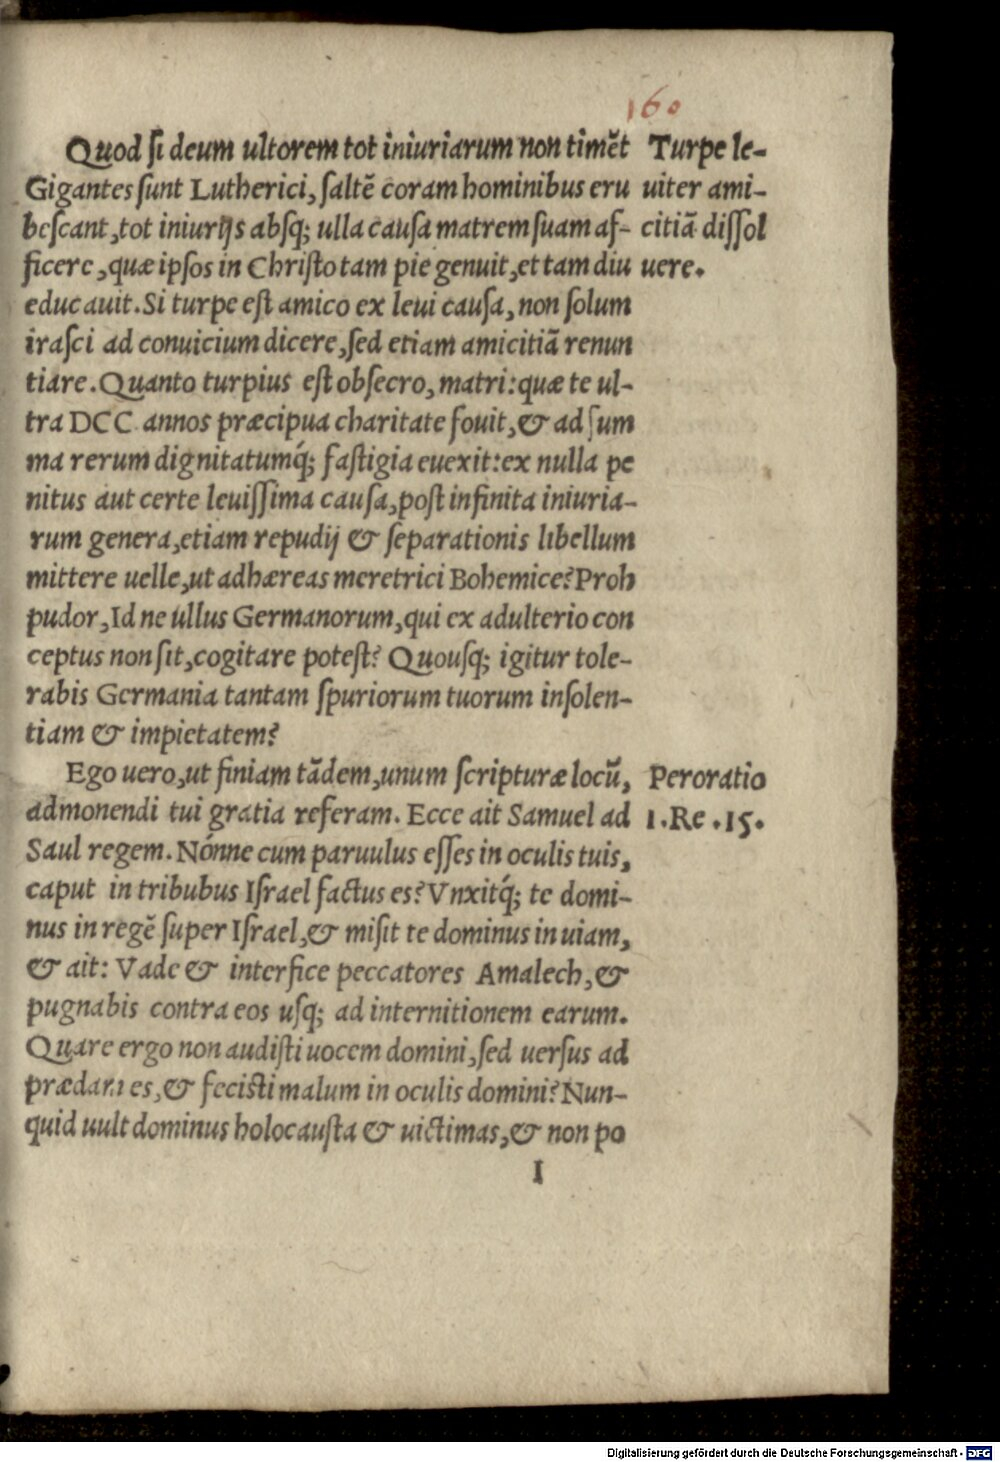 160
Quod ſi deum ultorem tot iniuriarum non timēt
Gigantes ſunt Lutherici, ſaltē coram hominibus eru
beſcant, tot iniurijs absq; ulla cauſa matrem ſuam af-
ficere, quæ ipſos in Chriſto tam pie genuit, et tam diu
educauit. Si turpe eſt amico ex leui cauſa, non ſolum
iraſci ad conuicium dicere, ſed etiam amicitiā renun
tiare. Quanto turpius eſt obſecro, matri: quæ te ul-
tra DCC annos præcipua charitate fouit, & ad ſum
ma rerum dignitatumq́; faſtigia euexit: ex nulla pe
nitus aut certe leuiſſima cauſa, poſt infinita iniuria-
rum genera, etiam repudij & ſeparationis libellum
mittere uelle, ut adhæreas meretrici Bohemice? Proh
pudor, Id ne ullus Germanorum, qui ex adulterio con
ceptus non ſit, cogitare poteſt? Quouſq; igitur tole-
rabis Germania tantam ſpuriorum tuorum inſolen-
tiam & impietatem?
Turpe le-
uiter ami-
citiā diſſol
uere.
Ego uero, ut finiam tādem, unum ſcripturæ locū,
admonendi tui gratia referam. Ecce ait Samuel ad
Saul regem. Nónne cum paruulus eſſes in oculis tuis,
caput in tribubus Iſrael factus es? Vnxitq́; te domi-
nus in regē ſuper Iſrael, & miſit te dominus in uiam,
& ait: Vade & interfice peccatores Amalech, &
pugnabis contra eos uſq; ad internitionem earum.
Quare ergo non audiſti uocem domini, ſed uerſus ad
prædam es, & feciſti malum in oculis domini? Nun-
quid uult dominus holocauſta & uictimas, & non po
Peroratio
1. Re. 15.
I
Digitalisierung gefördert durch die Deutsche Forschungsgemeinschaft - DFG